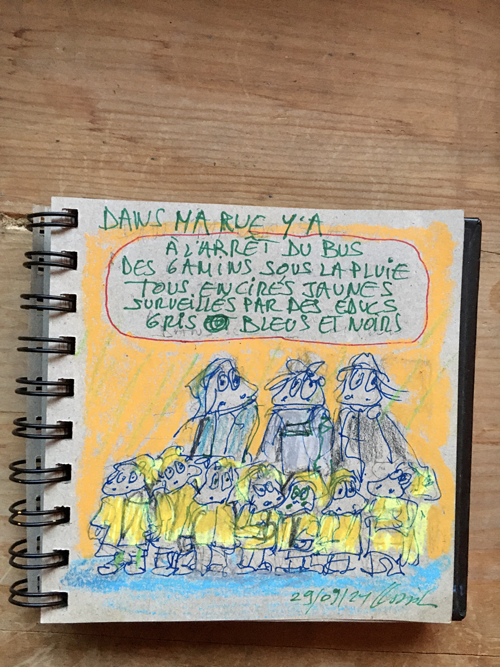 DANS MA RUE Y'A
A L'ARRÊT DU BUS
DES GAMINS SOUS LA PLUIE
TOUS EN CIRÉS JAUNES
SURVEILLÉS PAR DES EDUCS
GRIS BLEUS ET NOIRS
29/09/24